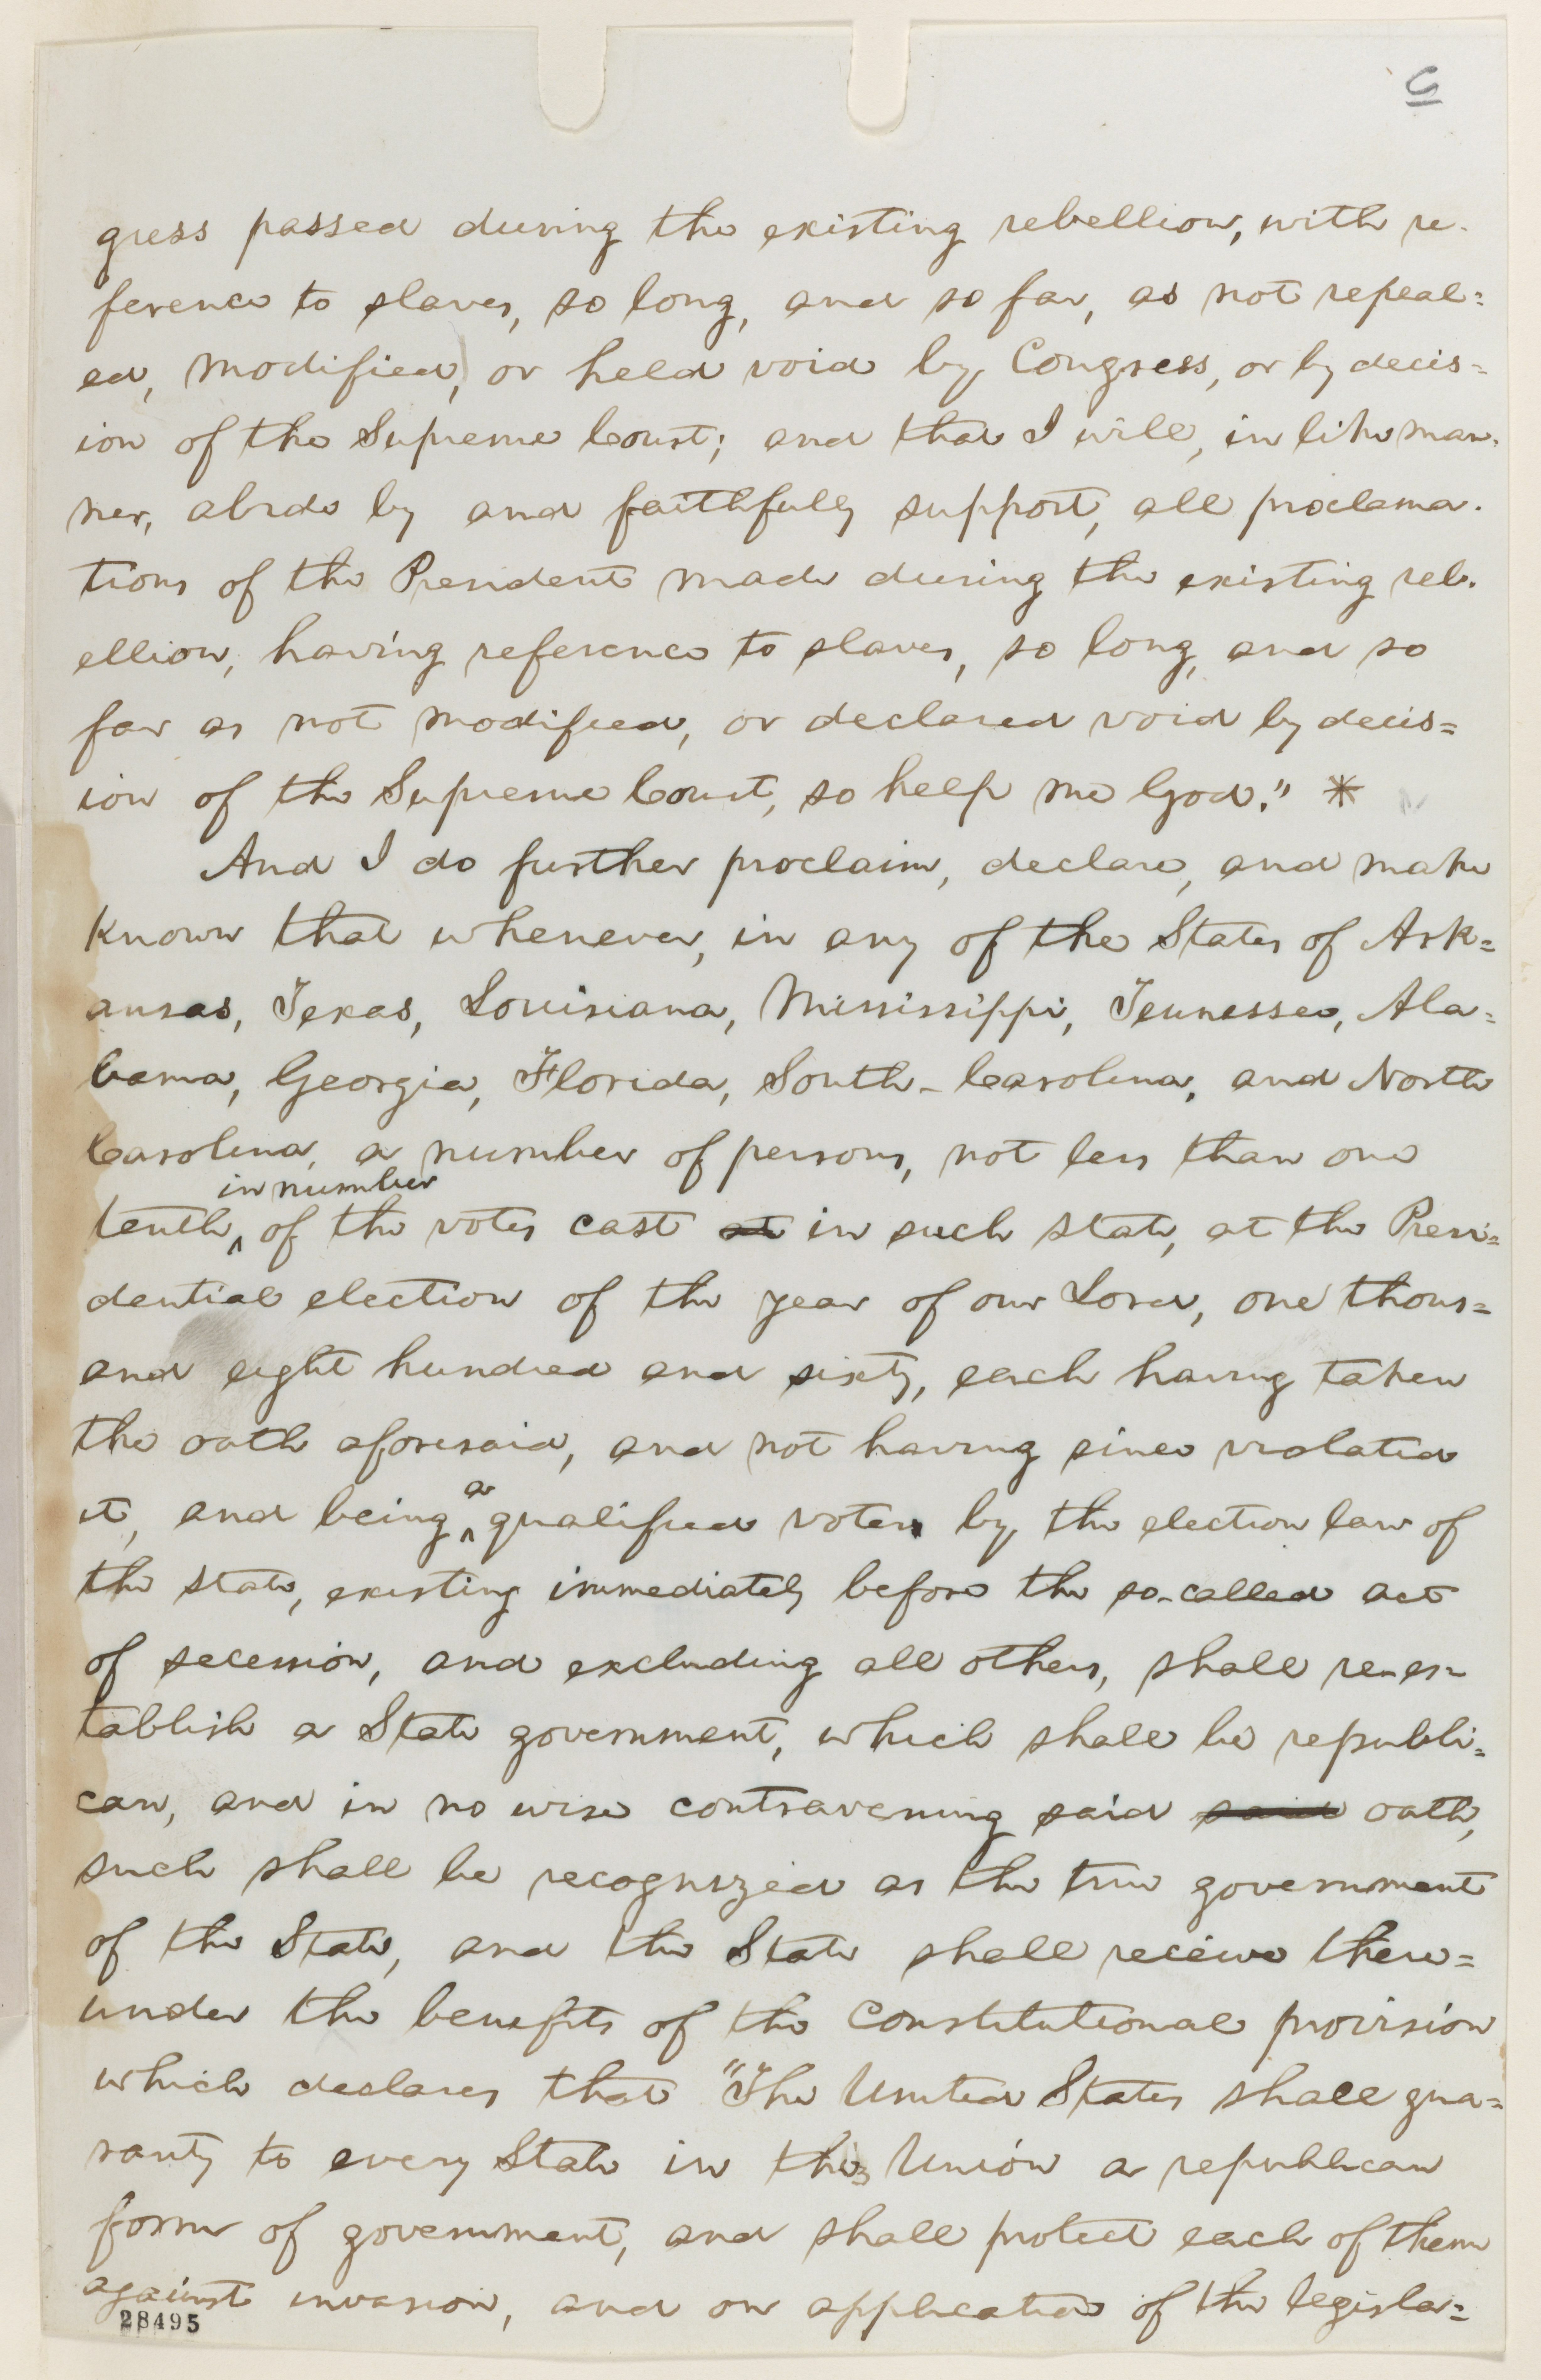 5
gress passed during the existing rebellion, with re-
ference to slaves, so long, and so far, as not repeal=
ed, modified, or held void by, Congress, or by decis=
ion of the Supreme Court; and that I will, in like man-
ner, abide by and faithfully support, all proclama-
tions of the President made during the existing reb-
ellion, having reference to slaves, so long, and so
far as not modified, or declared void by decis=
ion of the Supreme Court, so help me God." *
And I do further proclaim, declare, and make
known that whenever, in any of the States of Ark=
ansas, Texas, Louisiana, Mississippi, Tennessee, Ala=
bama, Georgia, Florida, South-Carolina, and North
Carolina, a number of persons, not less than one
in number
tenth ‸ of the votes cast at in such state, at the Presi=
dential election of the year of our Lord, one thous=
and eight hundred and sixty, each having taken
the oath aforesaid, and not having since violated
a
it, and being ‸ qualified voter by, the election law of
the state, existing immediately before the so-called act
of secession, and excluding all others, shall re-es=
tablish a State government, which shall be republi=
can, and in no wise contravening said said oath,
such shall be recognized as the true government
of the State, and the State shall receive there=
under the benefits of the Constitutional provision
which declares that "The United States shall gua=
ranty to every State in this Union a republican
form of government, and shall protect each of them
against invasion, and on application of the legisla=
28495